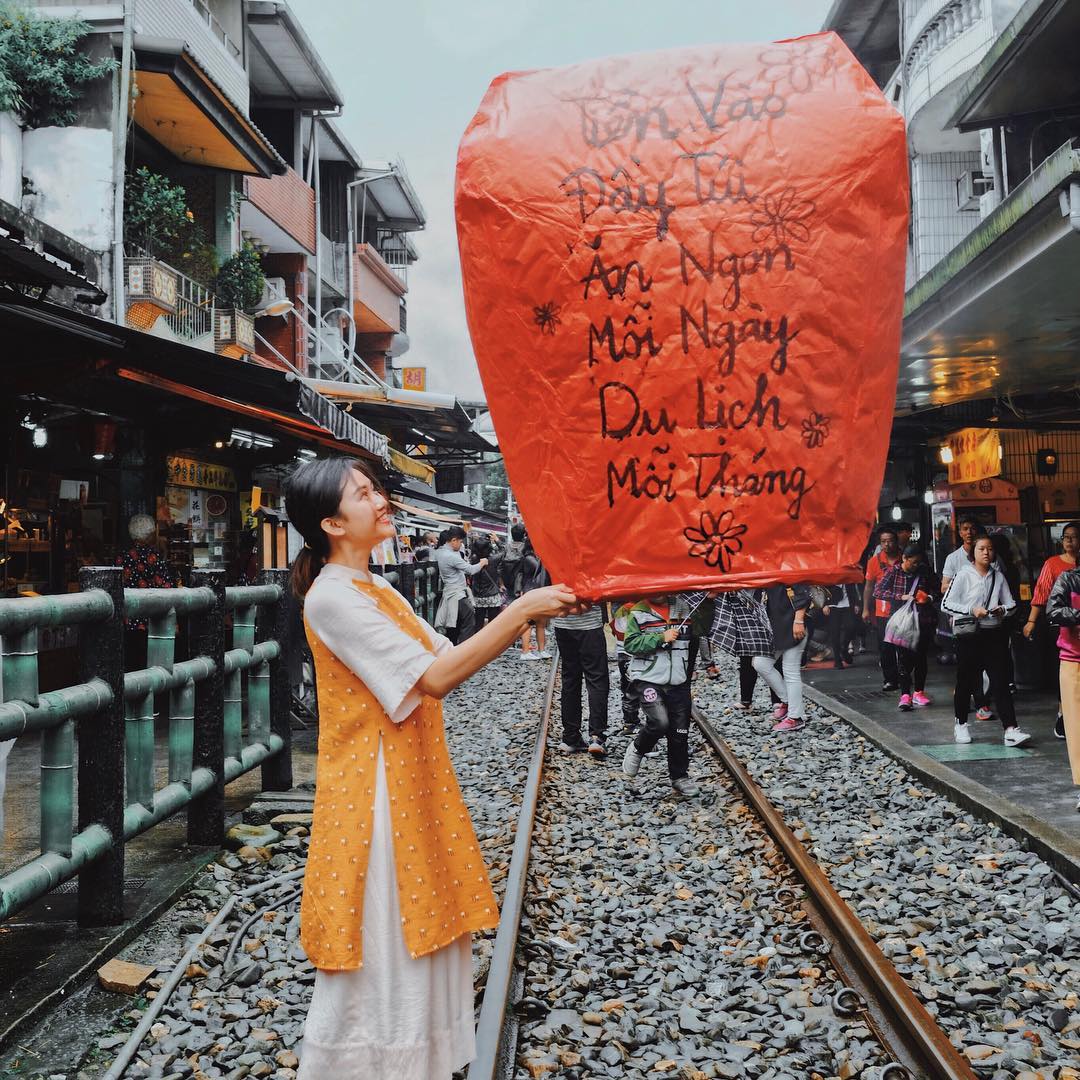 Tiền Vào
Đầy Túi
Ăn Ngon
Mỗi Ngày
Du Lịch
Mỗi Tháng
胡